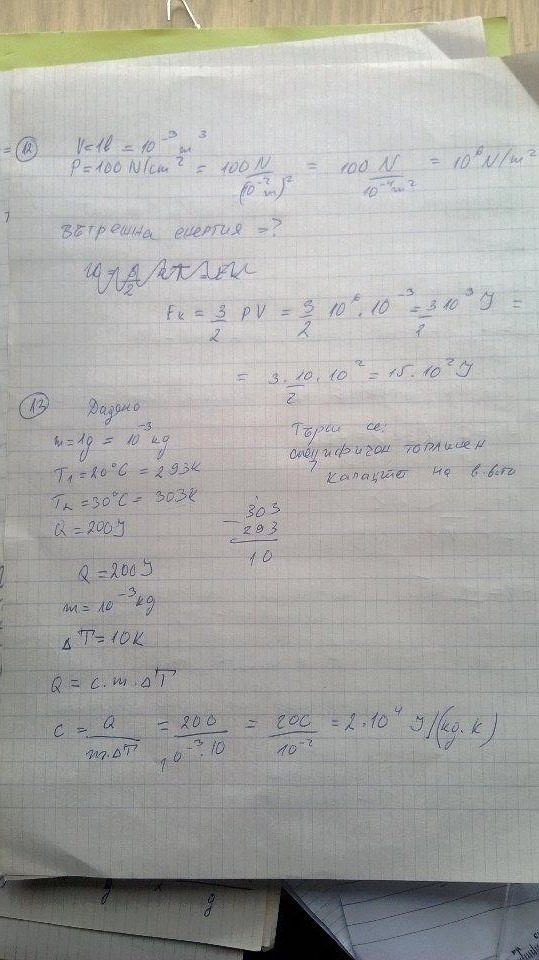 = 12 V=1l = 10⁻³ m³
P=100 N/cm² = 100 N/(10⁻² m)² = 100 N/10⁻⁴ m² = 10⁶ N/m²
вътрешна енергия =?
Eк = 3/2 PV = 3/2 10⁶ · 10⁻³ = 3/2 10³ J =
= 3·10/2 · 10² = 15 · 10² J
13 Дадено
m=1g = 10⁻³ kg
T₁=20°C = 293K
T₂=30°C = 303K
Q=200J
Търси се:
специфичен топлинен
капацитет на в-вто
303
- 293
10
Q=200J
m=10⁻³ kg
ΔT=10K
Q = c.m.ΔT
c = Q/m.ΔT = 200/10⁻³.10 = 200/10⁻² = 2·10⁴ J/(kg.K)